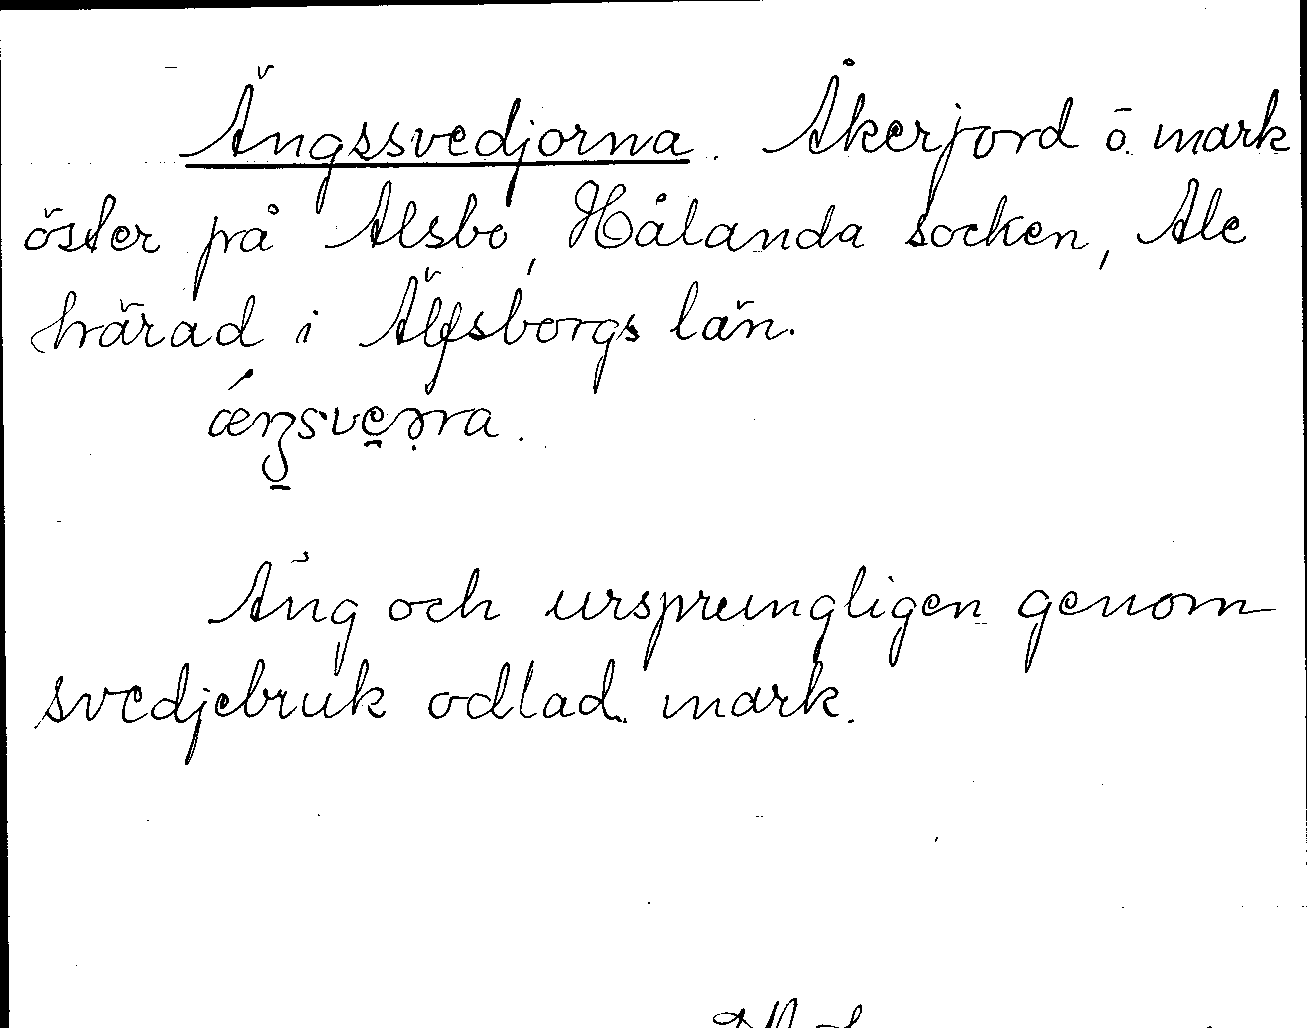 Ängssvedjorna. Åkerjord ö. mark
öster på Alsbo, Hålanda socken, Ale
härad i Älfsborgs län.
Äng och ursprungligen genom
svedjebruk odlad mark.